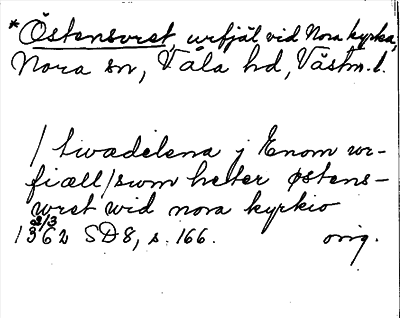 *Östensvret, urfjäl vid Nora kyrka,
Nora sn, Våla hd, Västm. l.
/ twadelena j Enom wr-
fiæll / swm heter østens-
wret wid nora kyrkio
3/3
1362 SD8, s. 166. orig.